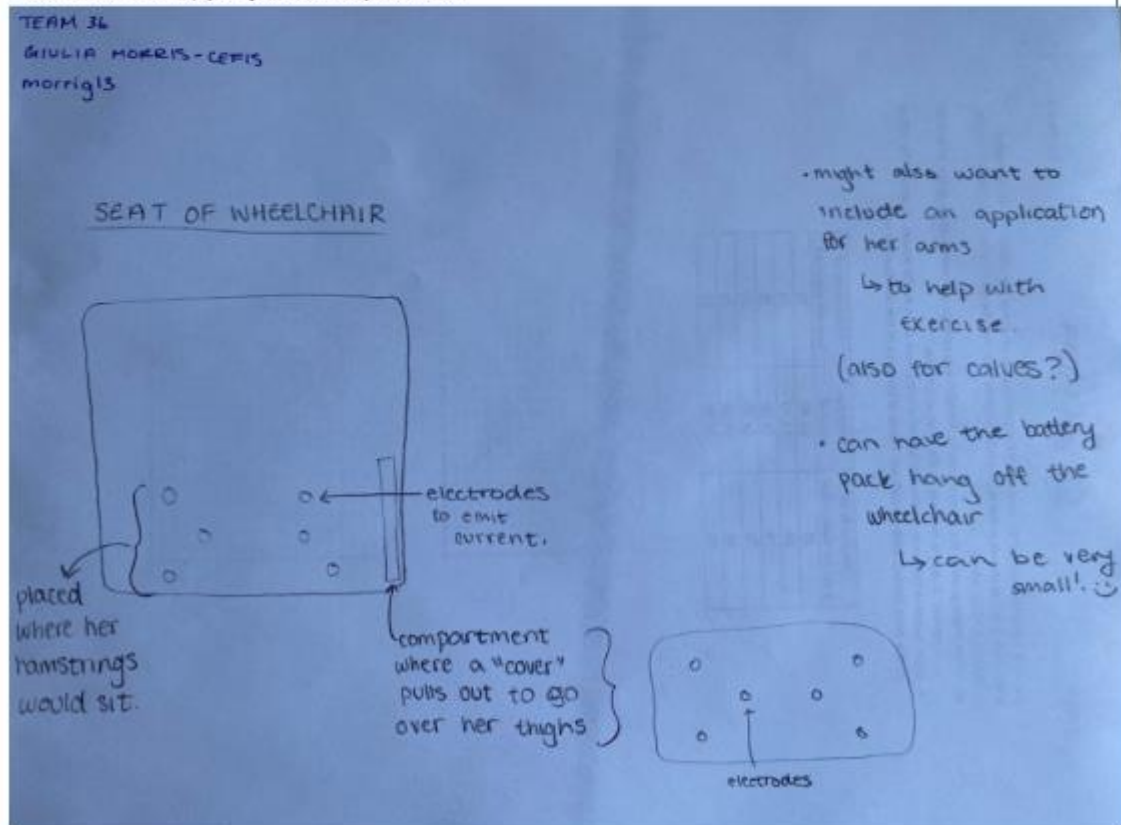 TEAM 36
GIULIA MORRIS-CEFIS
morrig13
SEAT OF WHEELCHAIR
electrodes
to emit
current.
placed
where her
hamstrings
would sit.
compartment
where a "cover"
pulls out to go
over her thighs
electrodes
• might also want to
include an application
for her arms
↳ to help with
exercise.
(also for calves?)
• can have the battery
pack hang off the
wheelchair
↳ can be very
small! :)